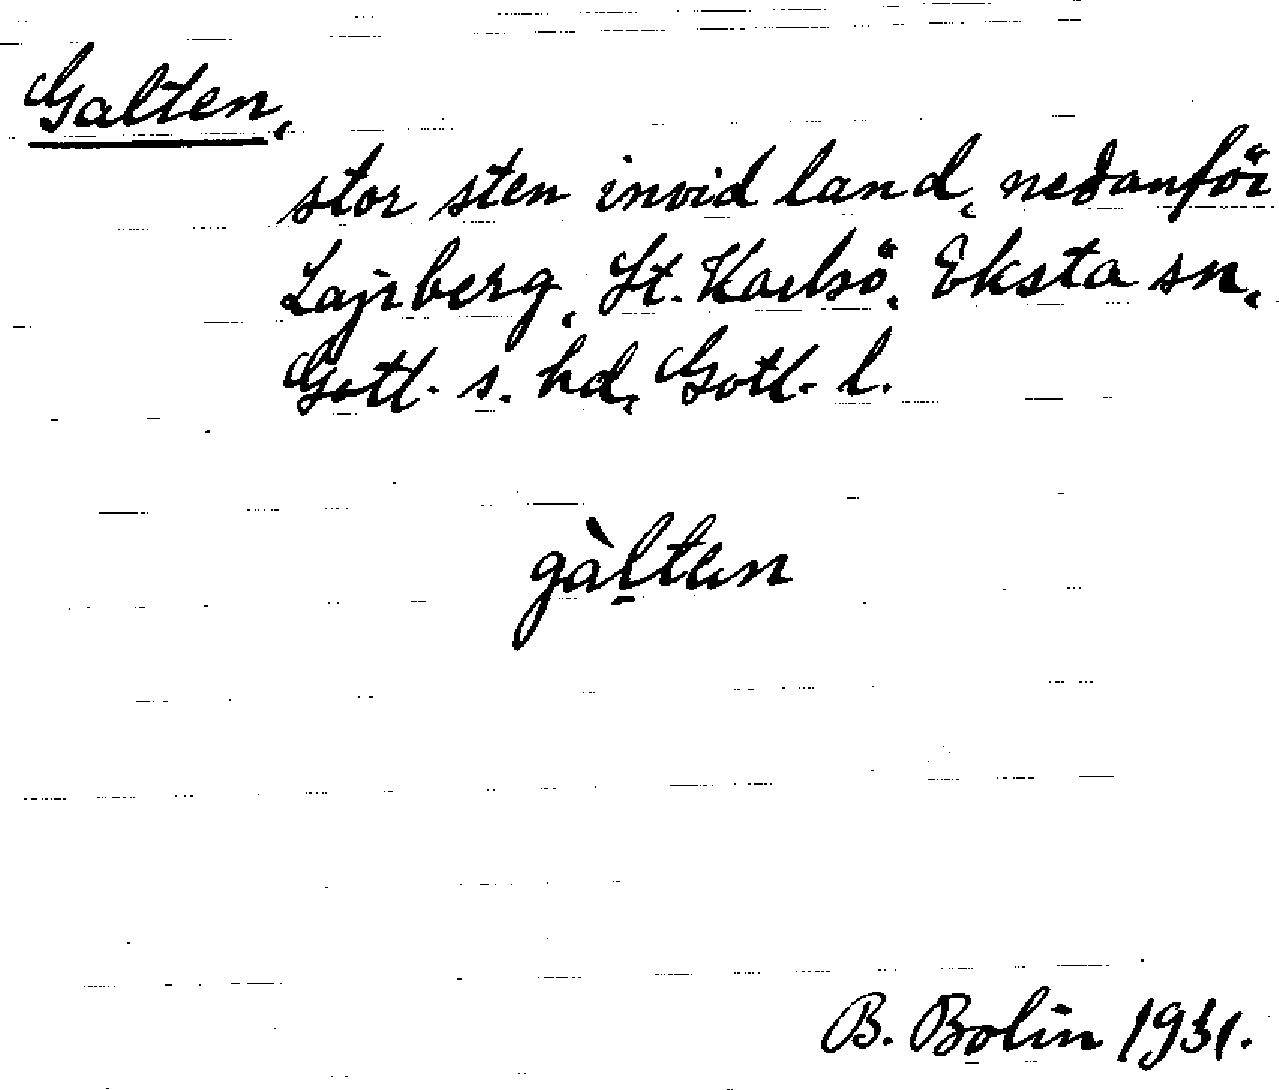 Galten,
stor sten invid land, nedanför
Lajrberg, St. Karlsö, Eksta sn,
Gotl. s. hd, Gotl. l.
gàl̠ten
B. Bolin 1931.